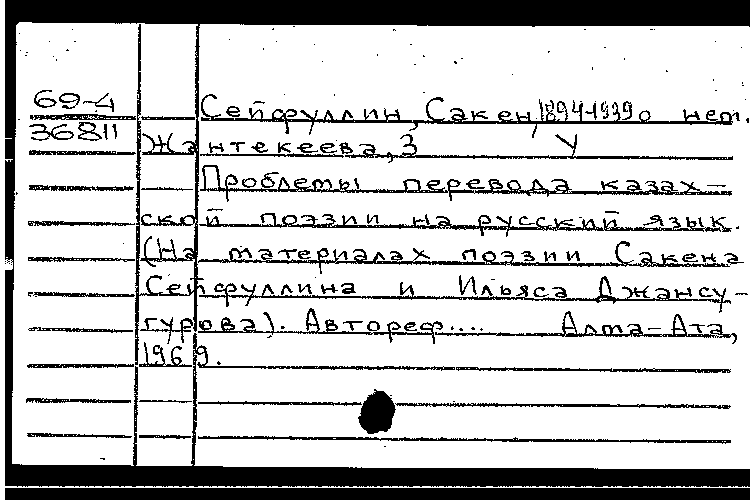 69-4
36811
Сейфуллин, Сакен, 1894-1939 о нем.
Жантекеева, З У
Проблемы перевода казах-
ской поэзии на русский язык.
(На материалах поэзии Сакена
Сейфуллина и Ильяса Джансу-
гурова). Автореф.... Алма-Ата,
1969.